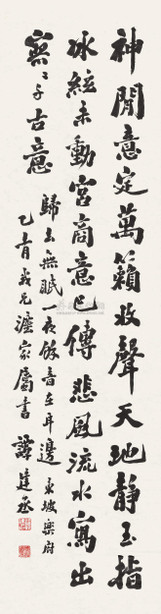 神閒意定萬籟收聲天地靜玉指
冰絃未動宮商意已傳悲風流水寫出
寥寥千古意
歸去無眠一夜餘音在耳邊 東坡樂府
乙酉
家屬書 譚建丞